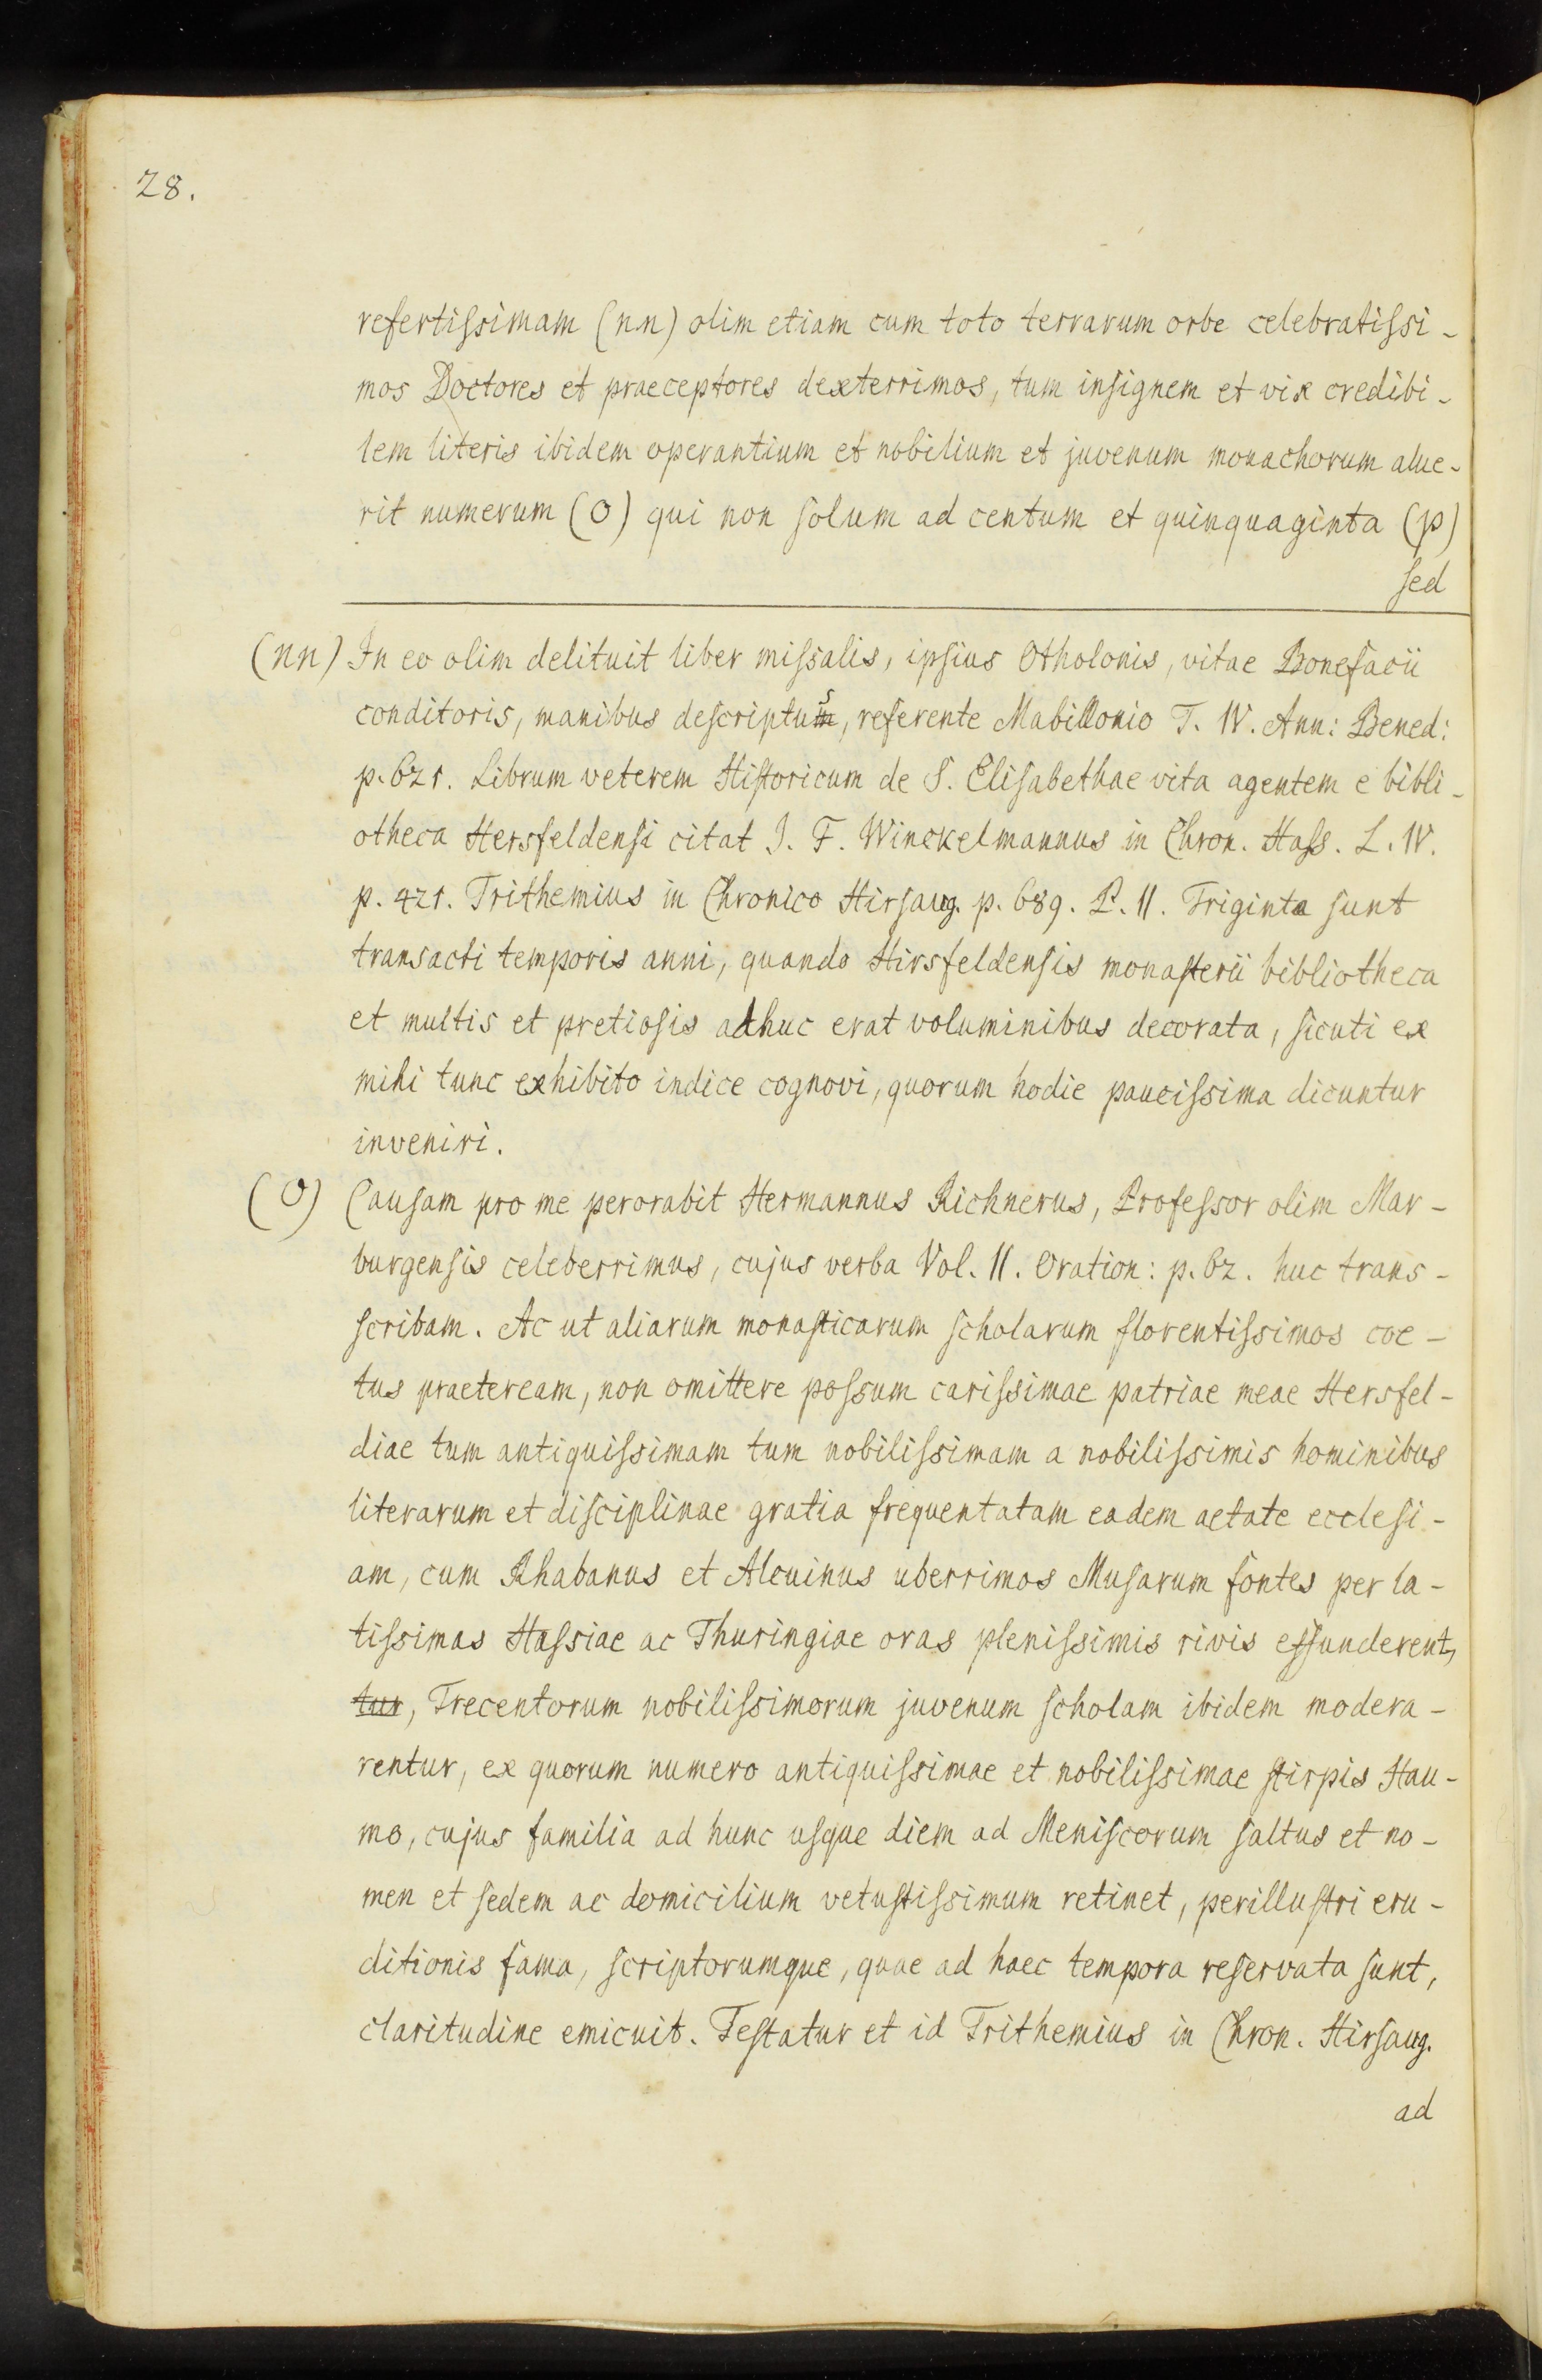 28.
refertiſsimam (nn) olim etiam cum toto terrarum orbe celebratiſsi-
mos Doctores et praeceptores dexterrimos, tum inſignem et vix credibi-
lem literis ibidem operantium et nobilium et juvenum monachorum alue-
rit numerum (O) qui non ſolum ad centum et quinquaginta (p)
ſed
(nn) In eo olim delituit liber miſsalis, ipſius Otholonis, vitae Bonefacii
conditoris, manibus deſcriptus, referente Mabillonio T. IV. Ann: Bened:
p. 621. Librum veterem Hiſtoricum de S. Eliſabethae vita agentem e bibli-
otheca Hersfeldenſi citat J. F. Winckelmannus in Chron. Haſs. L. IV.
p. 421. Trithemius in Chronico Hirſaug. p. 689. P. II. Triginta ſunt
transacti temporis anni, quando Hirsfeldenſis monaſterii bibliotheca
et multis et pretioſis adhuc erat voluminibus decorata, ſicuti ex
mihi tunc exhibito indice cognovi, quorum hodie pauciſsima dicuntur
inveniri.
(O) Cauſam pro me perorabit Hermannus Kichnerus, Profeſsor olim Mar-
burgenſis celeberrimus, cujus verba Vol. II. Oration: p. 62. huc trans-
ſcribam. Ac ut aliarum monaſticarum ſcholarum florentiſsimos coe-
tus praeteream, non omittere poſsum cariſsimae patriae meae Hersfel-
diae tum antiquiſsimam tum nobiliſsimam a nobiliſsimis hominibus
literarum et diſciplinae gratia frequentatam eadem aetate eccleſi-
am, cum Rhabanus et Alcuinus uberrimos Muſarum fontes per la-
tiſsimas Haſsiae ac Thuringiae oras pleniſsimis rivis effunderent,
tur, Trecentorum nobiliſsimorum juvenum ſcholam ibidem modera-
rentur, ex quorum numero antiquiſsimae et nobiliſsimae ſtirpis Hau-
mo, cujus familia ad hunc uſque diem ad Meniſcorum ſaltus et no-
men et ſedem ac domicilium vetuſtiſsimum retinet, perilluſtri eru-
ditionis fama, ſcriptorumque, quae ad haec tempora reſervata ſunt,
claritudine emicuit. Teſtatur et id Trithemius in Chron. Hirſaug.
ad